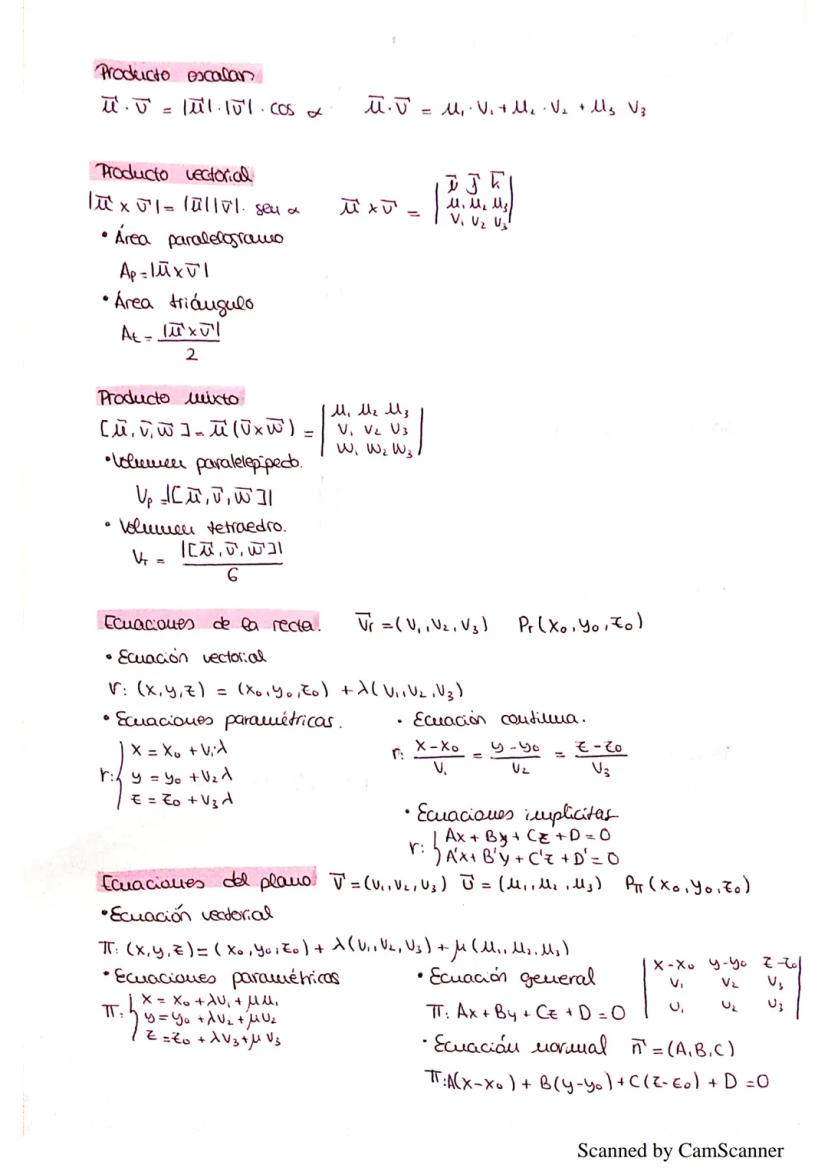 Producto escalar
u⃗ · v⃗ = |u⃗| · |v⃗| · cos α    u⃗ · v⃗ = u₁ · v₁ + u₂ · v₂ + u₃ v₃
Producto vectorial
|u⃗ x v⃗| = |u⃗| |v⃗| · sen α    u⃗ x v⃗ = | i⃗ j⃗ k⃗ |
| u₁ u₂ u₃ |
| v₁ v₂ v₃ |
• Área paralelogramo
Ap = |u⃗ x v⃗|
• Área triángulo
At = |u⃗ x v⃗| / 2
Producto mixto
[u⃗, v⃗, w⃗] = u⃗ (v⃗ x w⃗) = | u₁ u₂ u₃ |
| v₁ v₂ v₃ |
| w₁ w₂ w₃ |
• Volumen paralelepípedo.
Vp = |[u⃗, v⃗, w⃗]|
• Volumen tetraedro.
VT = |[u⃗, v⃗, w⃗]| / 6
Ecuaciones de la recta.    v⃗r = (v₁, v₂, v₃)    Pr (x₀, y₀, z₀)
• Ecuación vectorial
r: (x, y, z) = (x₀, y₀, z₀) + λ(v₁, v₂, v₃)
• Ecuaciones paramétricas.
r: { x = x₀ + v₁λ
y = y₀ + v₂λ
z = z₀ + v₃λ
• Ecuación continua.
r: (x-x₀)/v₁ = (y-y₀)/v₂ = (z-z₀)/v₃
• Ecuaciones implícitas
r: { Ax + By + Cz + D = 0
A'x + B'y + C'z + D' = 0
Ecuaciones del plano    v⃗ = (v₁, v₂, v₃)    u⃗ = (u₁, u₂, u₃)    Pπ (x₀, y₀, z₀)
• Ecuación vectorial
π: (x, y, z) = (x₀, y₀, z₀) + λ(v₁, v₂, v₃) + μ(u₁, u₂, u₃)
• Ecuaciones paramétricas
π: { x = x₀ + λv₁ + μu₁
y = y₀ + λv₂ + μu₂
z = z₀ + λv₃ + μv₃
• Ecuación general
π: Ax + By + Cz + D = 0
| x-x₀ y-y₀ z-z₀ |
| v₁ v₂ v₃ |
| u₁ u₂ u₃ |
• Ecuación normal    n⃗ = (A, B, C)
π: A(x-x₀) + B(y-y₀) + C(z-z₀) + D = 0
Scanned by CamScanner